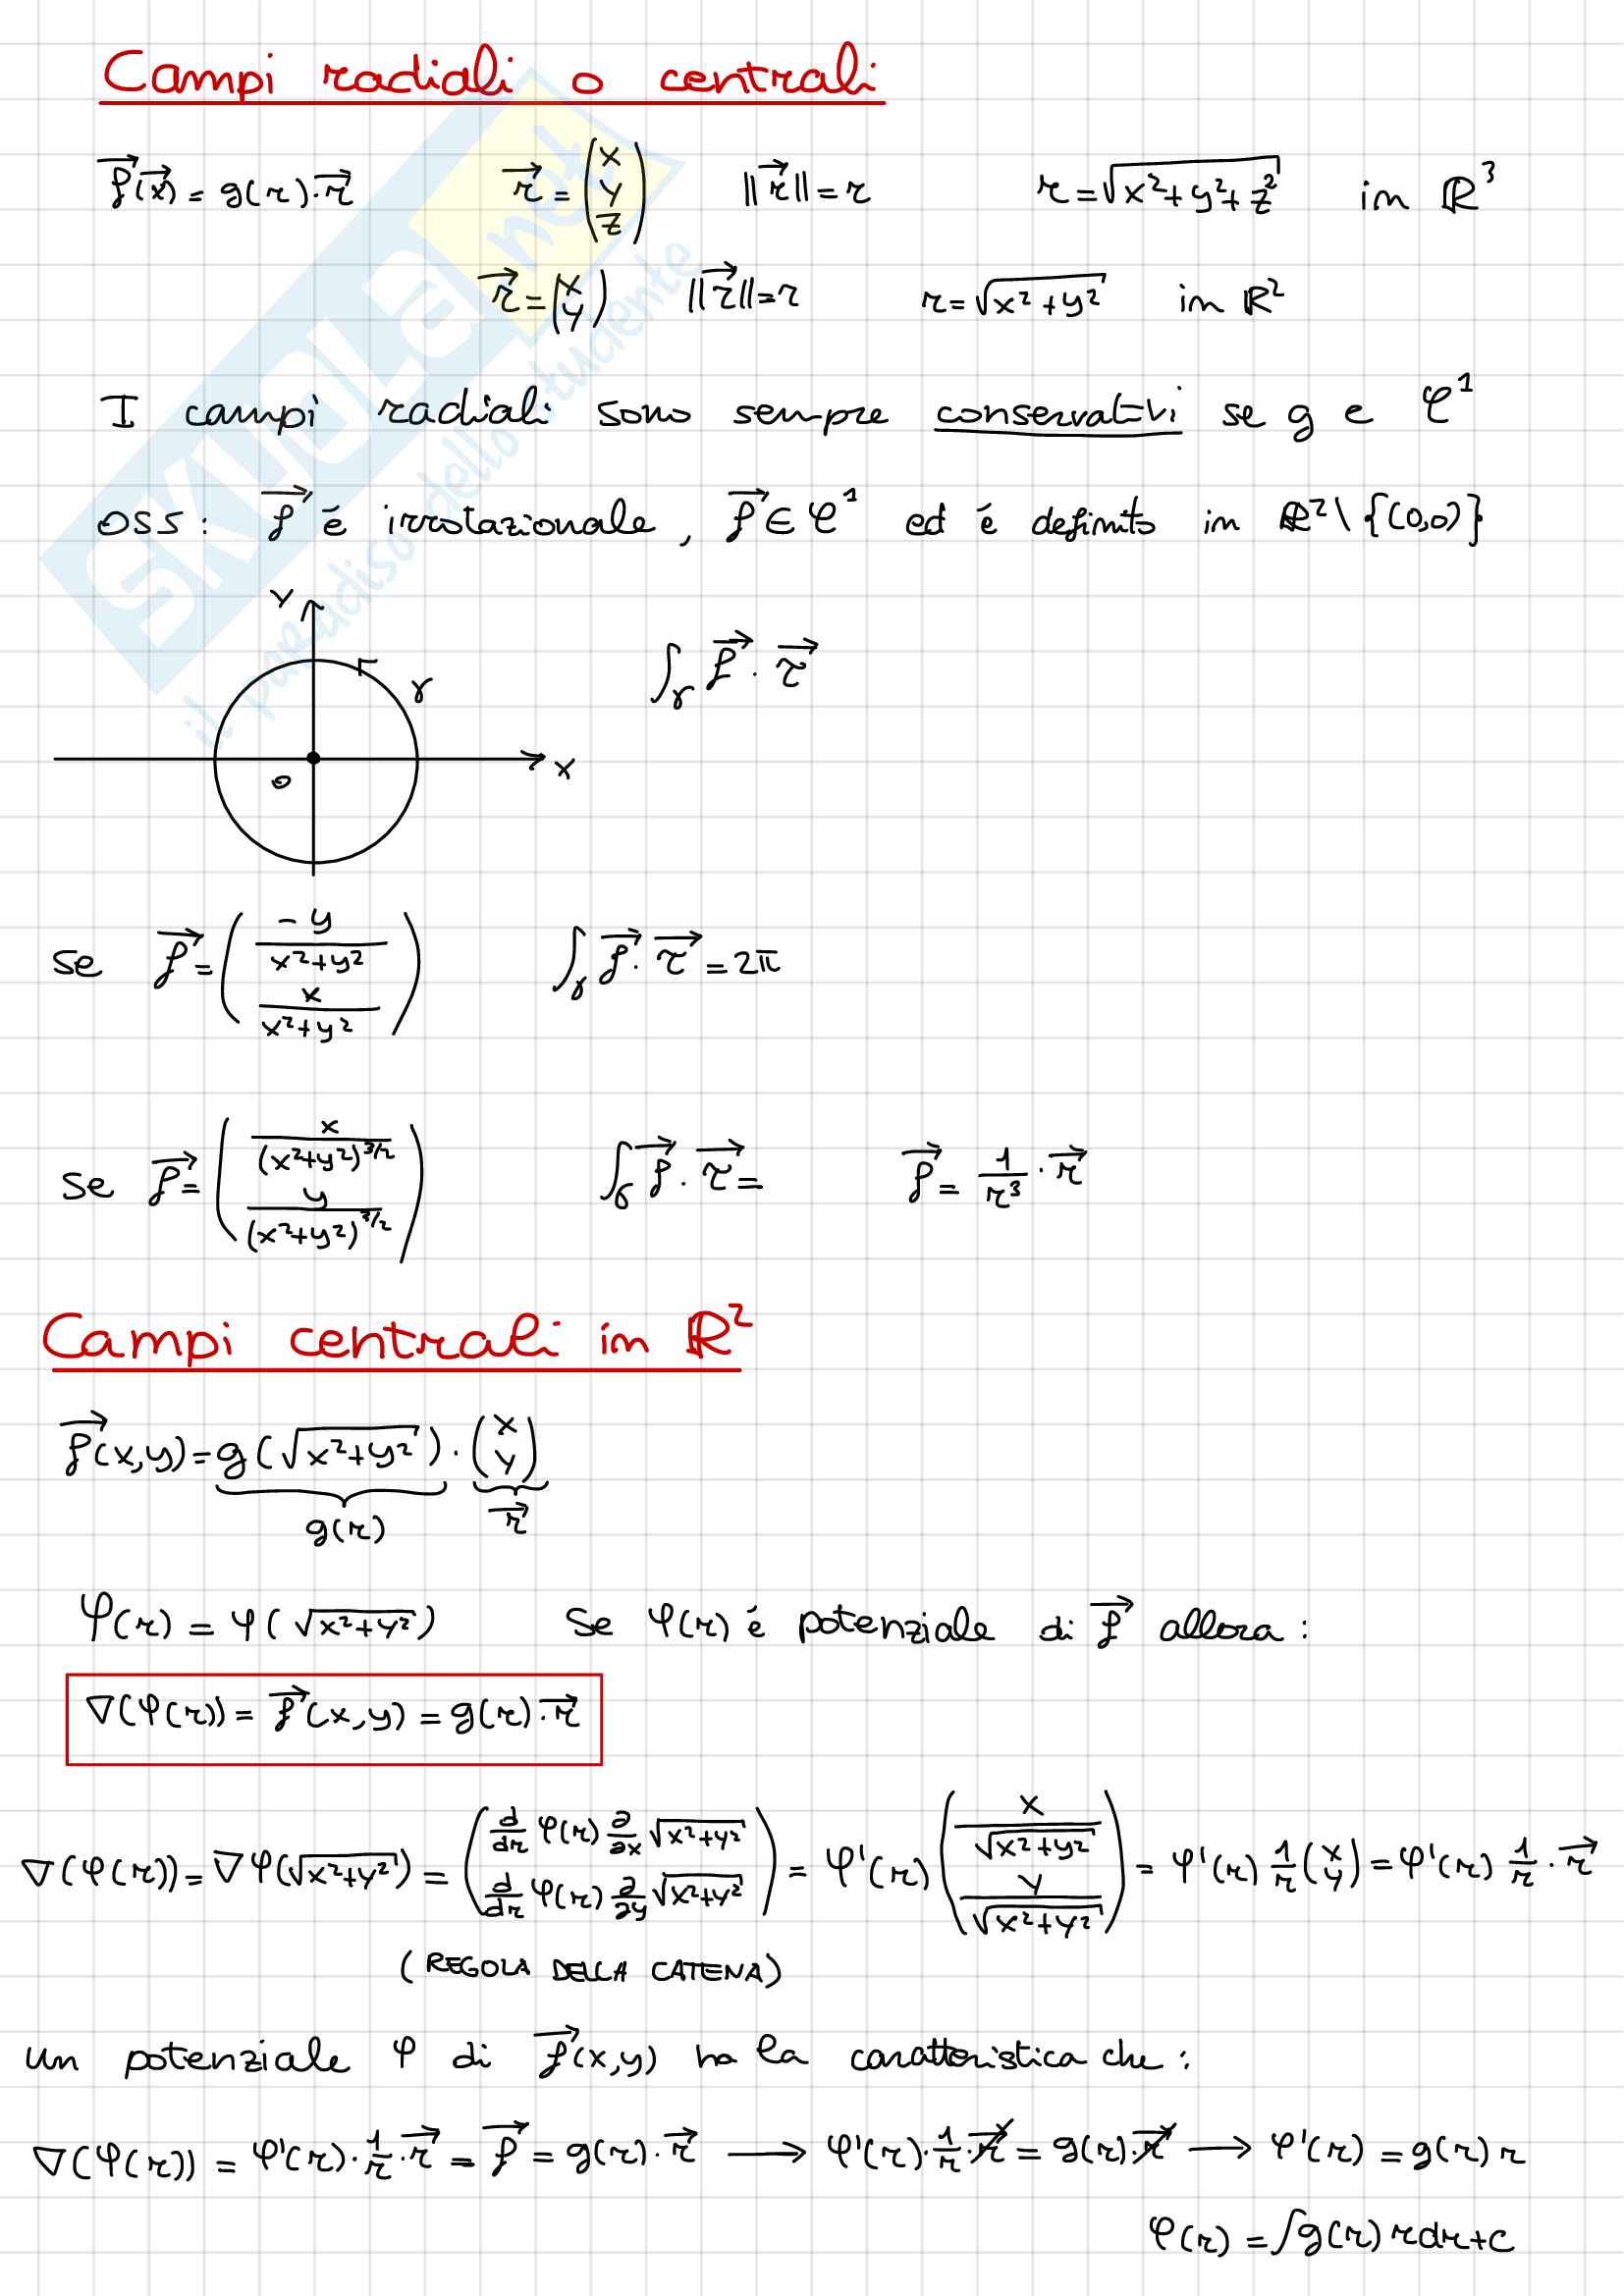 Campi radiali o centrali
f⃗(x⃗) = g(r)·r⃗    r⃗ = (x y z)    ||r⃗|| = r    r = √(x²+y²+z²)    in ℝ³
r⃗ = (x y)    ||r⃗|| = r    r = √(x²+y²)    in ℝ²
I campi radiali sono sempre conservativi se g e 𝒞¹
OSS: f⃗ é irrotazionale, f⃗ ∈ 𝒞¹ ed é definito in ℝ² \ {(0,0)}
y
γ
∫_γ f⃗ · τ⃗
x
0
se f⃗ = (-y/(x²+y²) x/(x²+y²))    ∫_γ f⃗ · τ⃗ = 2π
se f⃗ = (x/(x²+y²)^(3/2) y/(x²+y²)^(3/2))    ∫_γ f⃗ · τ⃗ =    f⃗ = 1/r³ · r⃗
Campi centrali in ℝ²
f⃗(x,y) = g(√(x²+y²)) · (x y)
g(r)    r⃗
φ(r) = φ(√(x²+y²))    Se φ(r) é potenziale di f⃗ allora:
∇(φ(r)) = f⃗(x,y) = g(r)·r⃗
∇(φ(r)) = ∇φ(√(x²+y²)) = (d/dr φ(r) ∂/∂x √(x²+y²) d/dr φ(r) ∂/∂y √(x²+y²)) = φ'(r) (x/√(x²+y²) y/√(x²+y²)) = φ'(r) 1/r (x y) = φ'(r) 1/r · r⃗
(REGOLA DELLA CATENA)
un potenziale φ di f⃗(x,y) ha la caratteristica che:
∇(φ(r)) = φ'(r)·1/r·r⃗ = f⃗ = g(r)·r⃗ ⟶ φ'(r)·1/r·r⃗ = g(r)·r⃗ ⟶ φ'(r) = g(r) r
φ(r) = ∫g(r) r dr + c
SKUOLA.net
il paradiso dello studente